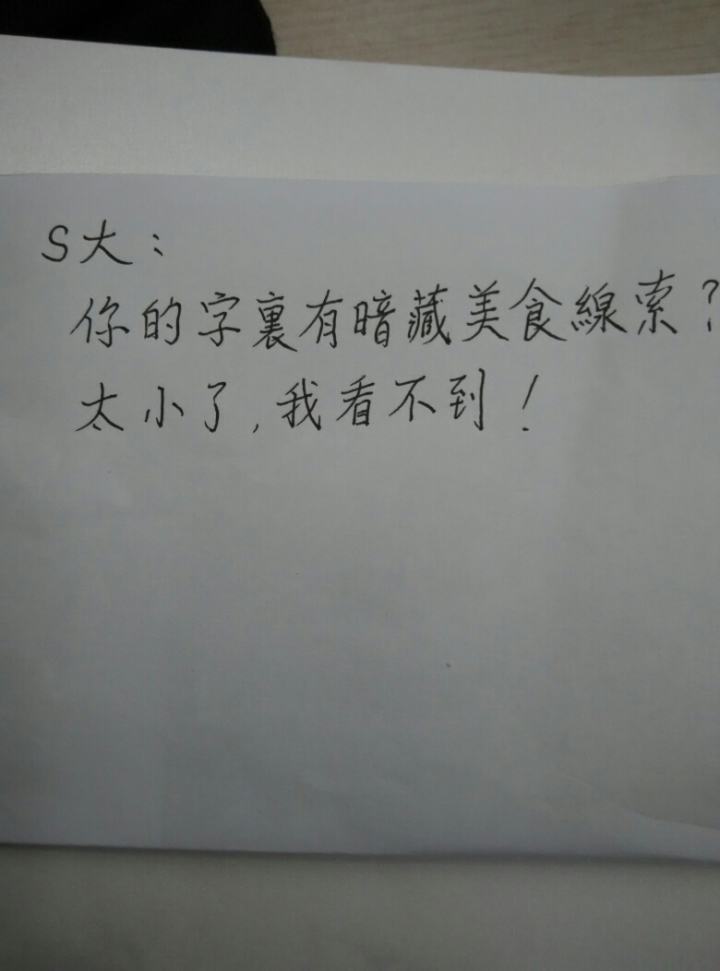 S大：
你的字裏有暗藏美食線索？
太小了,我看不到！